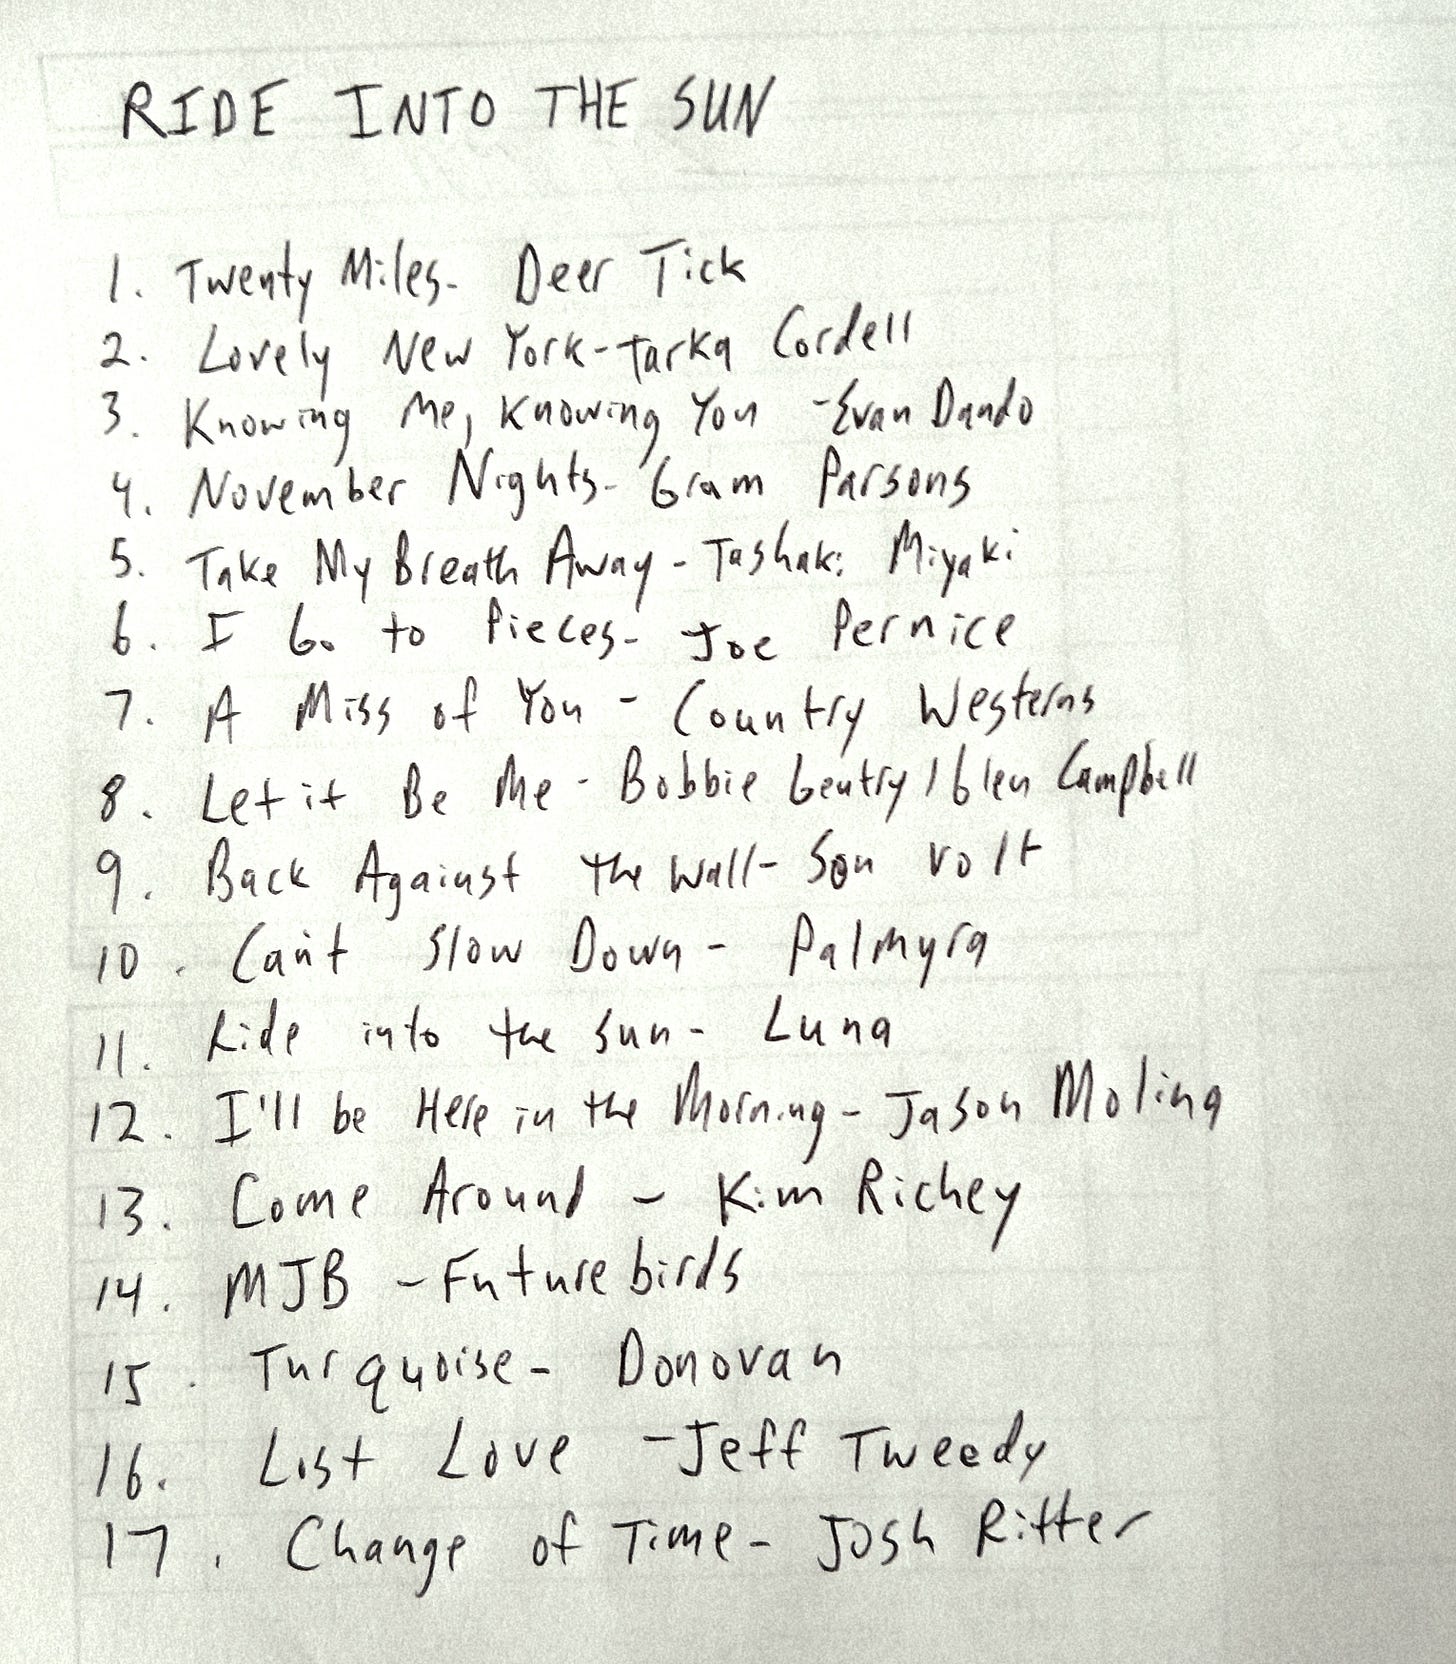 RIDE INTO THE SUN
1. Twenty Miles- Deer Tick
2. Lovely New York-Tarka Cordell
3. Knowing Me, Knowing You -Evan Dando
4. November Nights- Gram Parsons
5. Take My Breath Away - Tashaki Miyaki
6. I Go to Pieces- Joe Pernice
7. A Miss of You - Country Westerns
8. Let it Be Me - Bobbie Gentry/Glen Campbell
9. Back Against the Wall- Son Volt
10. Can't Slow Down - Palmyra
11. Ride into the Sun- Luna
12. I'll be Here in the Morning - Jason Molina
13. Come Around - Kim Richey
14. MJB - Futurebirds
15. Turquoise - Donovan
16. Lost Love -Jeff Tweedy
17. Change of Time- Josh Ritter